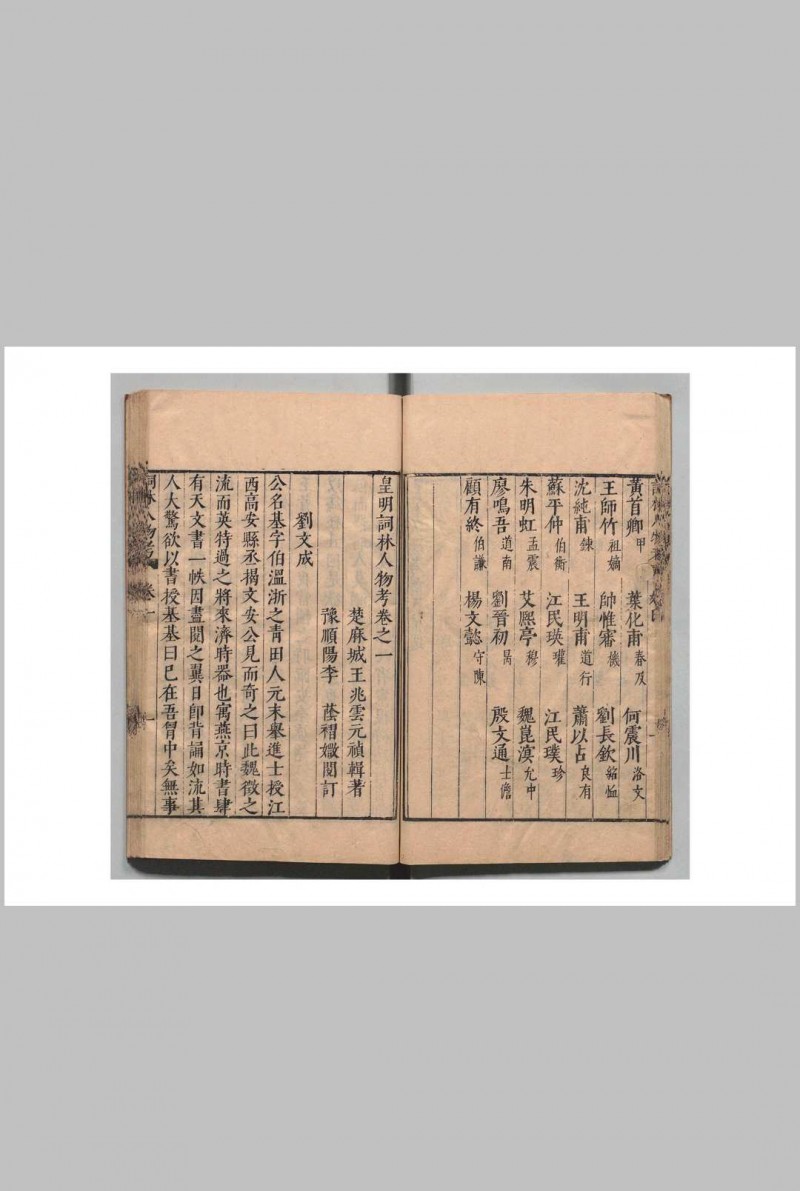 黃首卿甲 葉化甫春及 何震川洛文
王師竹祖嫡 帥惟審機 劉長欽紹恤
沈純甫鍊 王明甫道行 蕭以占良有
蘇平仲伯衡 江民瑛瓘 江民璞珍
朱明虹孟震 艾熙亭穆 魏崑溟允中
廖鳴吾道南 劉晉初昺 殷文通士儋
顧有終伯謙 楊文懿守陳
皇明詞林人物考卷之一
楚麻城王兆雲元禎輯著
豫順陽李 蔭襲媺閱訂
劉文成
公名基字伯溫浙之青田人元末舉進士授江
西高安縣丞揭文安公見而奇之曰此魏徵之
流而英特過之將來濟時器也寓燕京時書肆
有天文書一帙因盡閱之翼日即背誦如流其
人大驚欲以書授基基曰已在吾胷中矣無事
詞林人物考 卷一